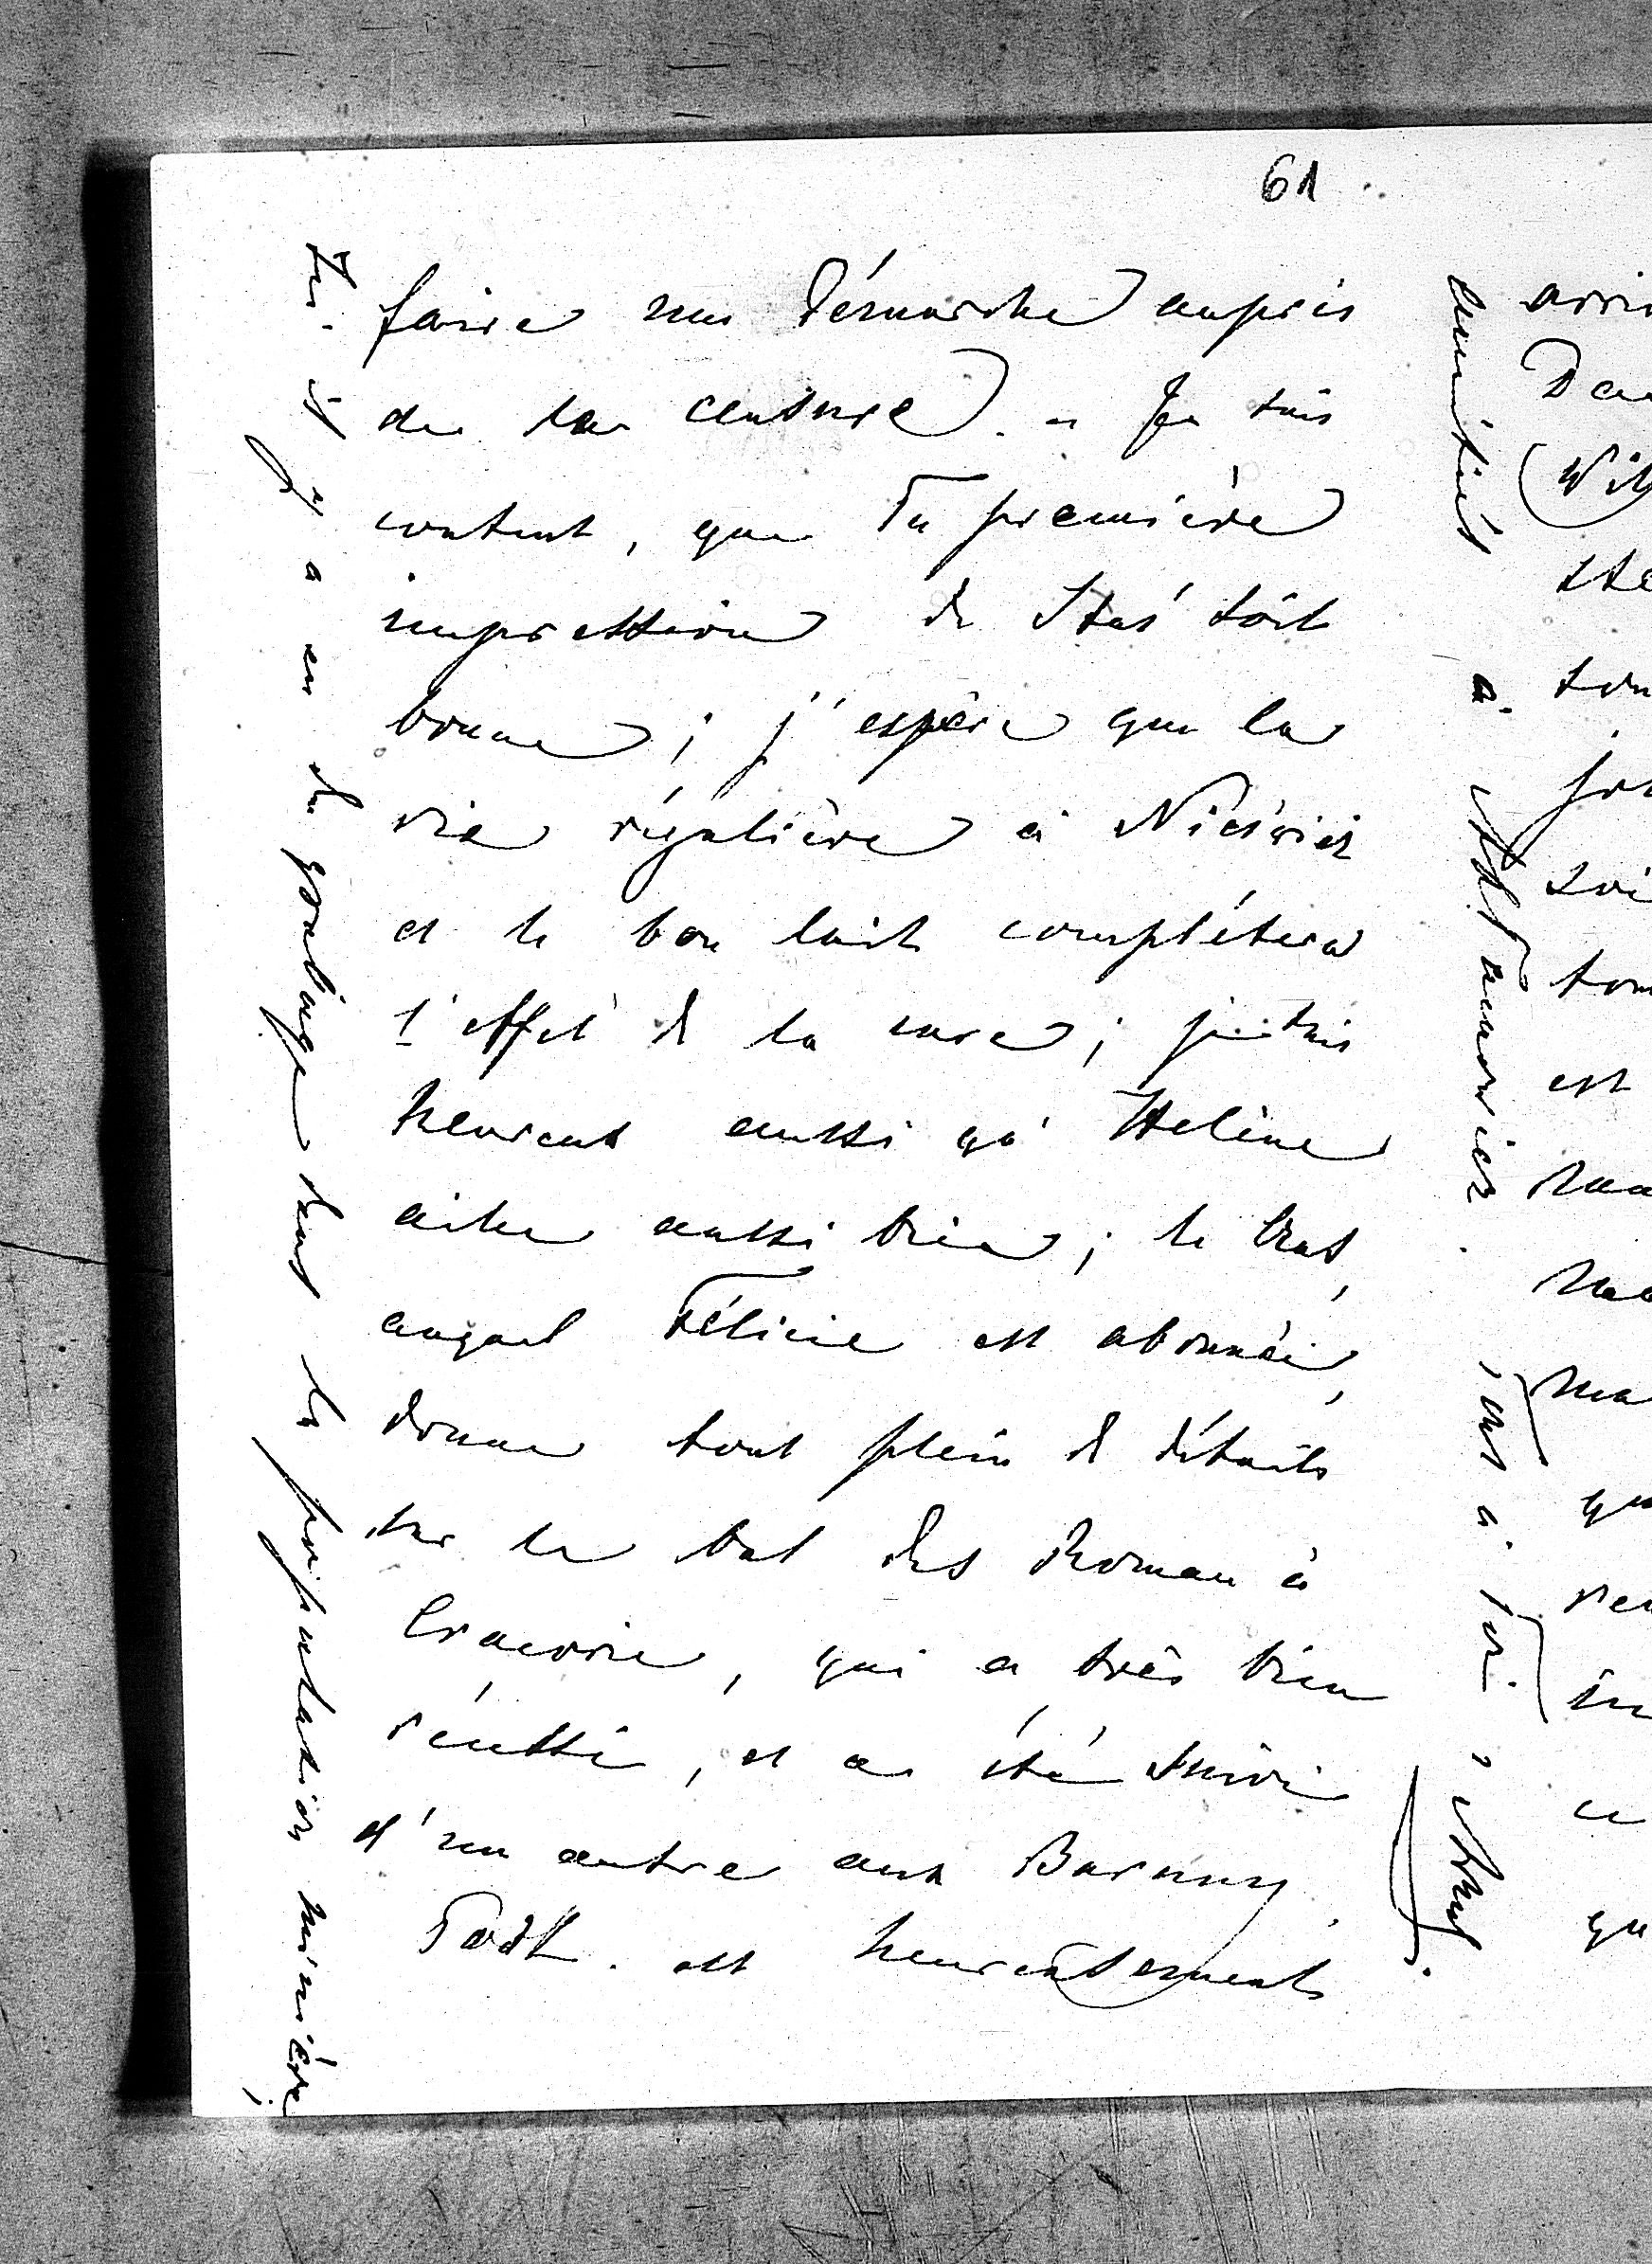 61
faire une démarche auprès
de la censure. – Je suis
content, que Ta première
impression de Staś soit
bonne ; j'espère que la
vie régulière à Nieśwież
et le bon lait complétera
l'effet de la cure ; je suis
heureux aussi qu'Helène
aille aussi bien ; le
auquel Félicie est abonnée,
donne tout plein de détails
sur le bal des Roman à
Cracovie, qui a très bien
réussi, et a été suivi
d'un autre aux
est heureusement
il y a eu du grabuge dans la population minière
amitiés à
à Toi,
arri
Dan
(Wil
tou
soi
tom
est
ma
qu
in
qu